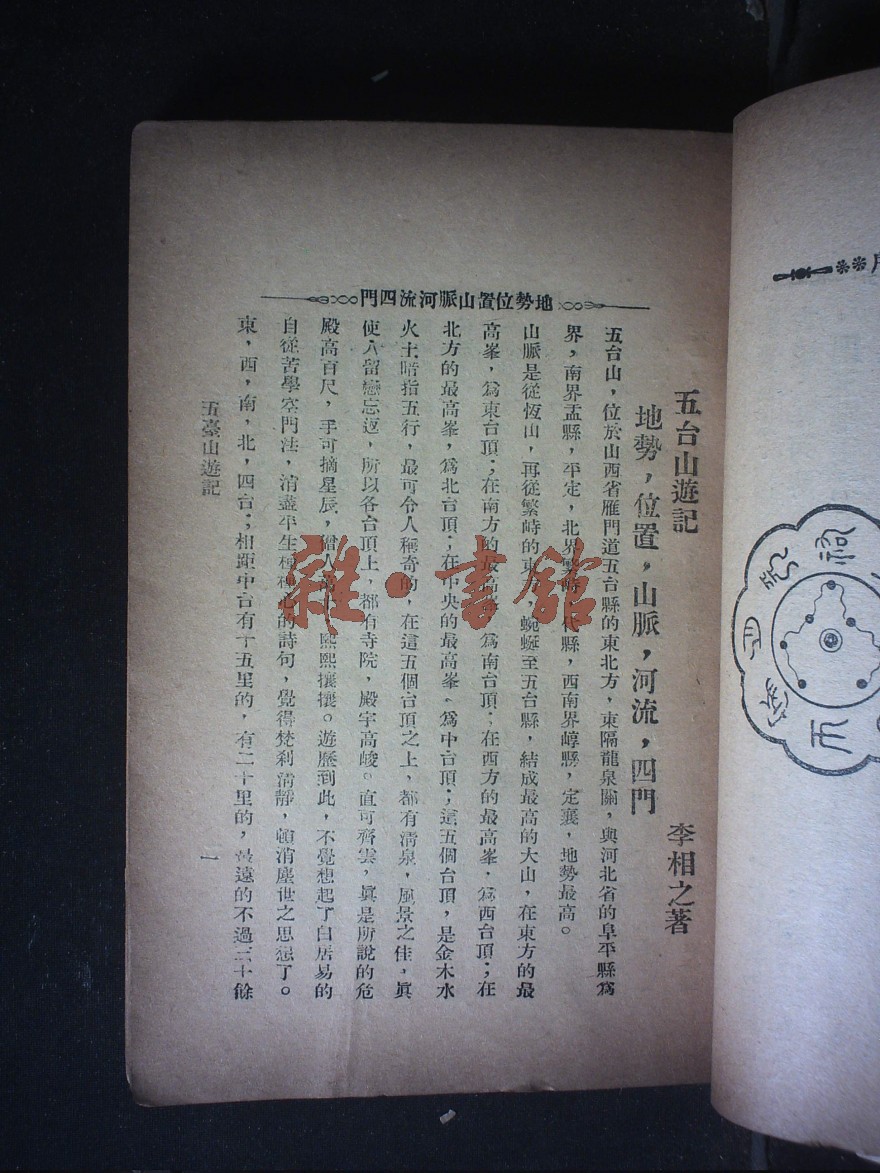 五台山遊記
李相之著
地勢，位置，山脈，河流，四門
地勢位置山脈河流四門
五台山，位於山西省雁門道五台縣的東北方，東隔龍泉關，與河北省的阜平縣爲
界，南界盂縣，平定，北界繁峙，代縣，西南界崞縣，定襄，地勢最高。
山脈是從恆山，再從繁峙的東方，蜿蜒至五台縣，結成最高的大山，在東方的最
高峯，爲東台頂；在南方的最高峯，爲南台頂；在西方的最高峯，爲西台頂；在
北方的最高峯，爲北台頂；在中央的最高峯、爲中台頂；這五個台頂，是金木水
火土暗指五行，最可令人稱奇的，在這五個台頂之上，都有淸泉，風景之佳，眞
使人留戀忘返，所以各台頂上，都有寺院，殿宇高峻。直可齊雲，眞是所說的危
殿高百尺，手可摘星辰，僧人 熙熙攘攘。遊歷到此，不覺想起了白居易的
自從苦學空門法，消盡平生種種心的詩句，覺得梵刹淸靜，頓消塵世之思想了。
東，西，南，北，四台；相距中台有十五里的，有二十里的，最遠的不過三十餘
五臺山遊記
一
雜·書館